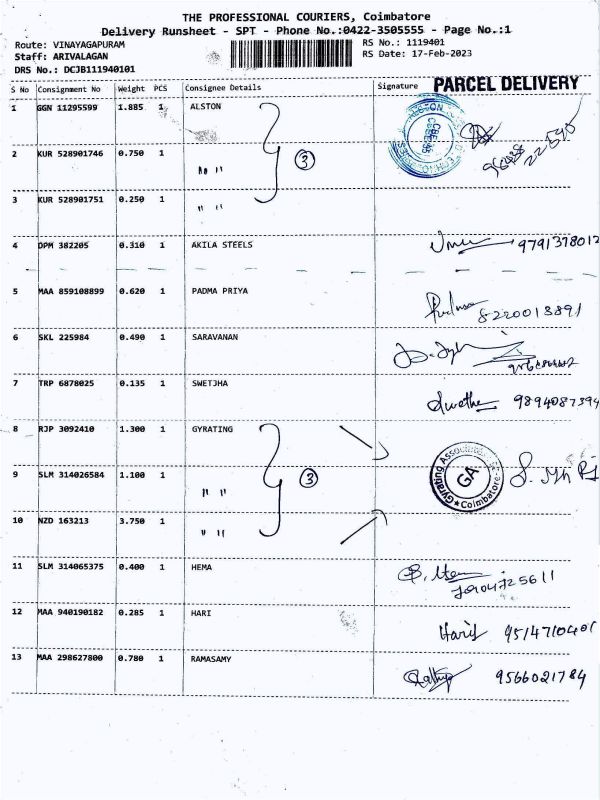 THE PROFESSIONAL COURIERS, Coimbatore
Delivery Runsheet - SPT - Phone No.:0422-3505555 - Page No.:1
Route: VINAYAGAPURAM RS No.: 1119401
Staff: ARIVALAGAN RS Date: 17-Feb-2023
DRS No.: DCJB111940101
PARCEL DELIVERY
S No Consignment No Weight PCS Consignee Details Signature
1 GGN 11295599 1.885 1 ALSTON
2 KUR 528901746 0.750 1 " " 3
3 KUR 528901751 0.250 1 " "
4 DPM 382205 0.310 1 AKILA STEELS 9791378012
5 MAA 859108899 0.620 1 PADMA PRIYA 8220018891
6 SKL 225984 0.490 1 SARAVANAN
7 TRP 6878025 0.135 1 SWETJHA Swetha 9894087394
8 RJP 3092410 1.300 1 GYRATING
9 SLM 314026584 1.100 1 " " 3 Gyrating Associates GA Coimbatore
10 NZD 163213 3.750 1 " "
11 SLM 314065375 0.400 1 HEMA 7904725611
12 MAA 940190182 0.285 1 HARI Hari 9514710401
13 MAA 298627800 0.780 1 RAMASAMY 9566021784